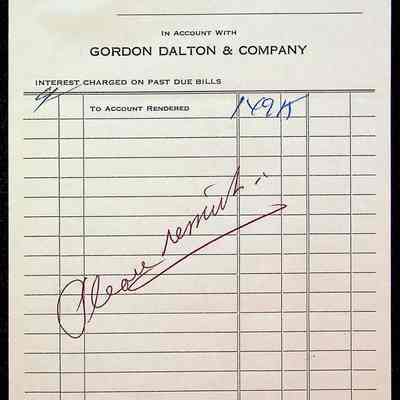 In Account With
GORDON DALTON & COMPANY
INTEREST CHARGED ON PAST DUE BILLS
To Account Rendered 149 15
Please remit..